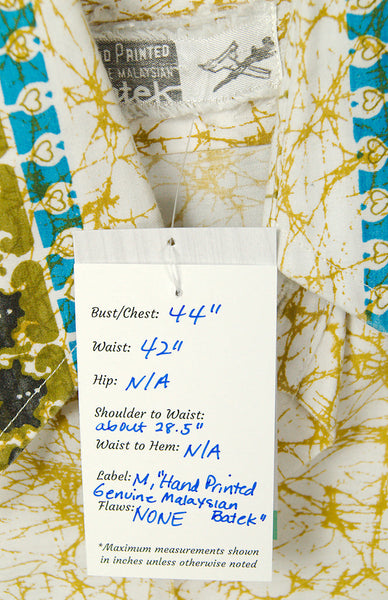 PRINTED
MALAYSIAN
Bust/Chest: 44"
Waist: 42"
Hip: N/A
Shoulder to Waist:
about 28.5"
Waist to Hem: N/A
Label: M, "Hand Printed
Genuine Malaysian
Flaws: NONE Batek"
*Maximum measurements shown
in inches unless otherwise noted